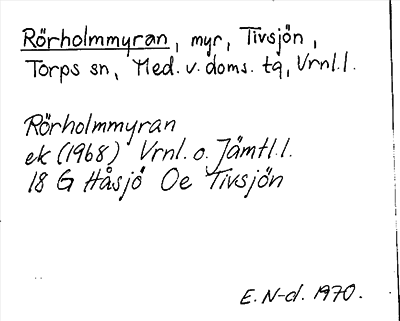 Rörholmmyran, myr, Tivsjön,
Torps sn, Med. v. doms. tg, Vrnl. l.
Rörholmmyran
ek (1968) Vrnl. o. Jämtl. l.
18 G Håsjö Oe Tivsjön
E. N-d. 1970.